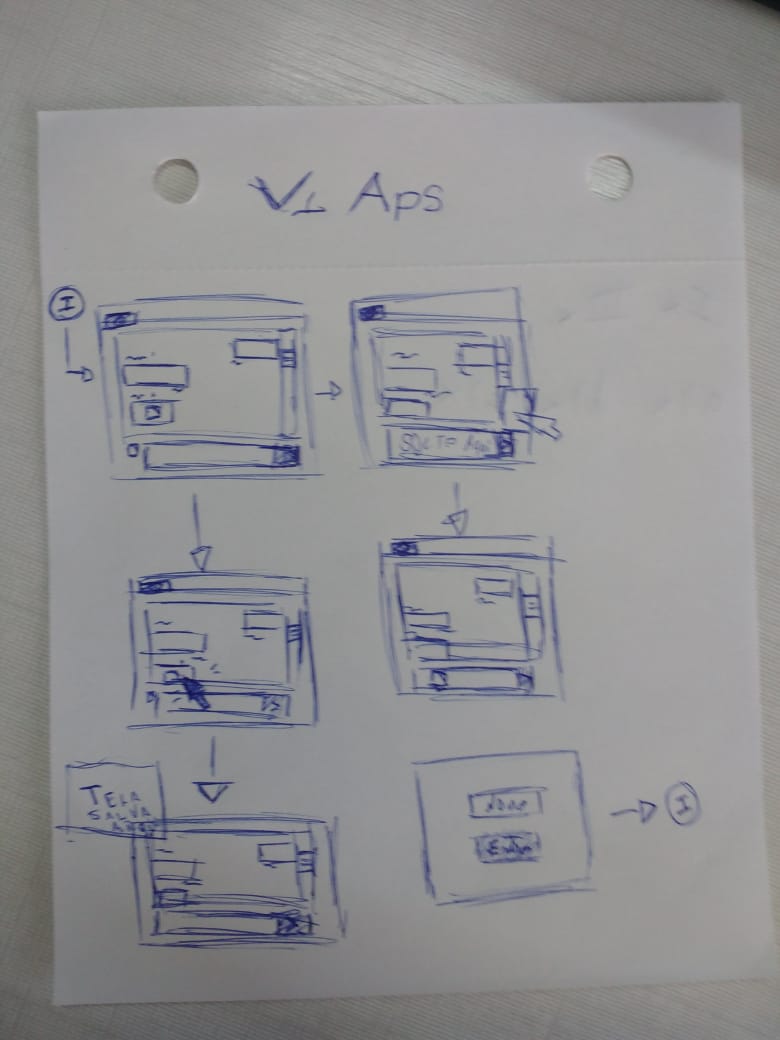 V1 Aps
I
SOLTE Aqui
TELA
SALVA
Nome
Entrar
I